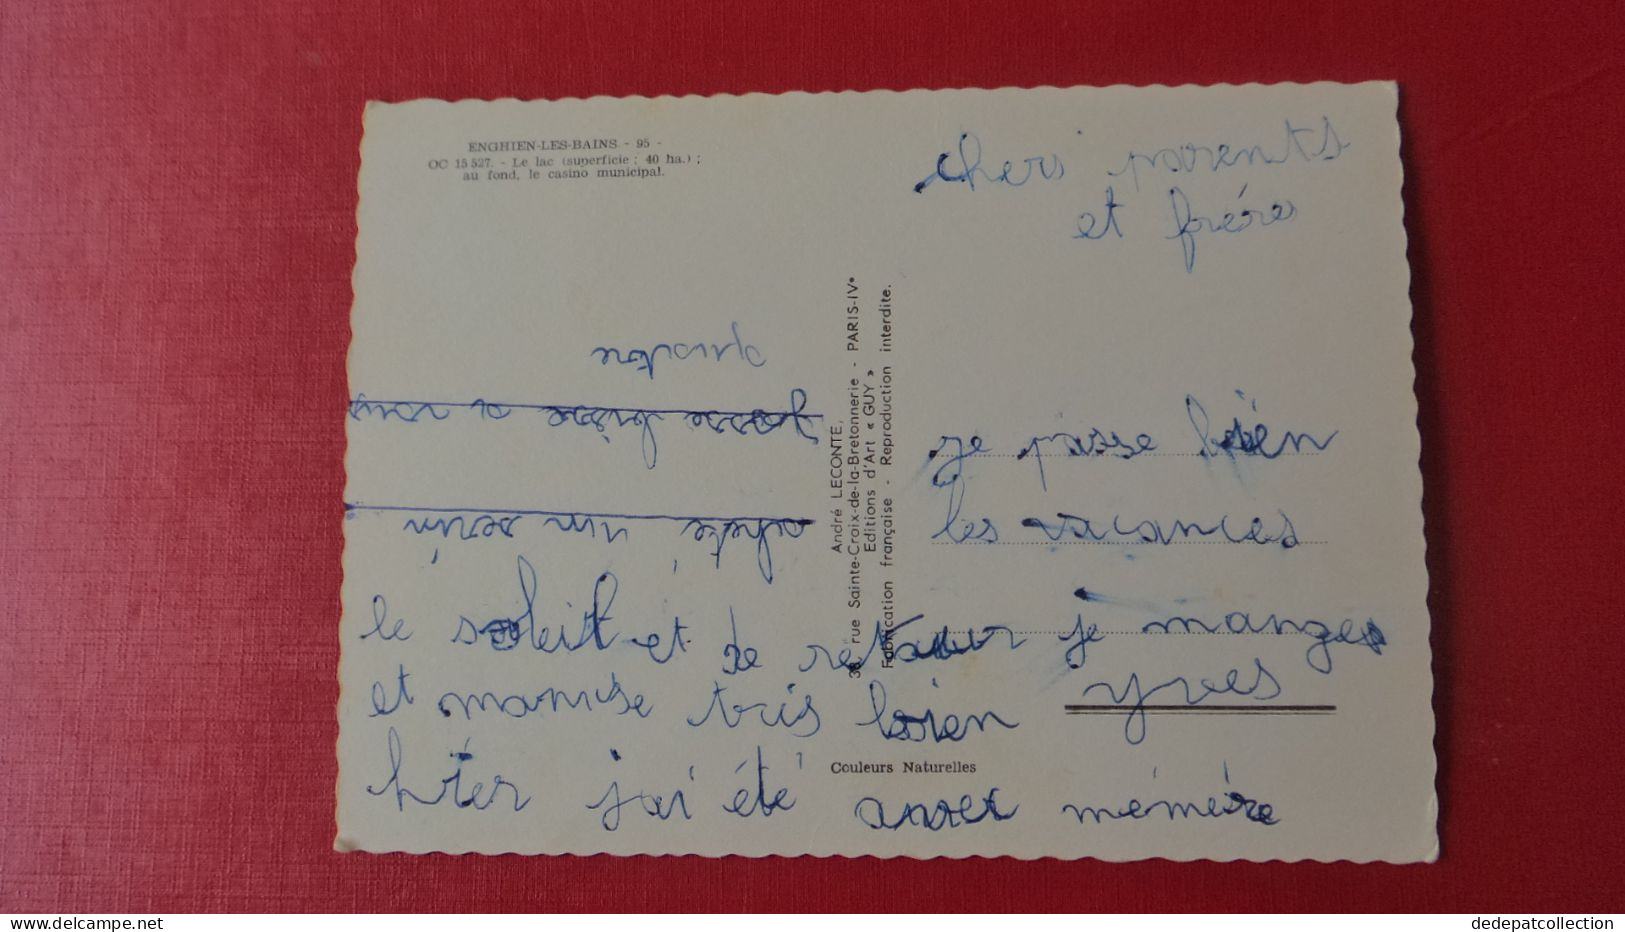 ENGHIEN-LES-BAINS - 95 -
OC 15 527. - Le lac (superficie : 40 ha.) ;
au fond, le casino municipal.
chers parents
et frére
je passe bien
les vacances
le soleit et de retour je mange
et mamuse tris bien
hier j'ai été avec mémére
acheté un serin
grosse bisse a vous
yves
André LECONTE,
38, rue Sainte-Croix-de-la-Bretonnerie - PARIS-IVe
Editions d'Art « GUY »
Fabrication française - Reproduction interdite.
Couleurs Naturelles
dedepatcollection